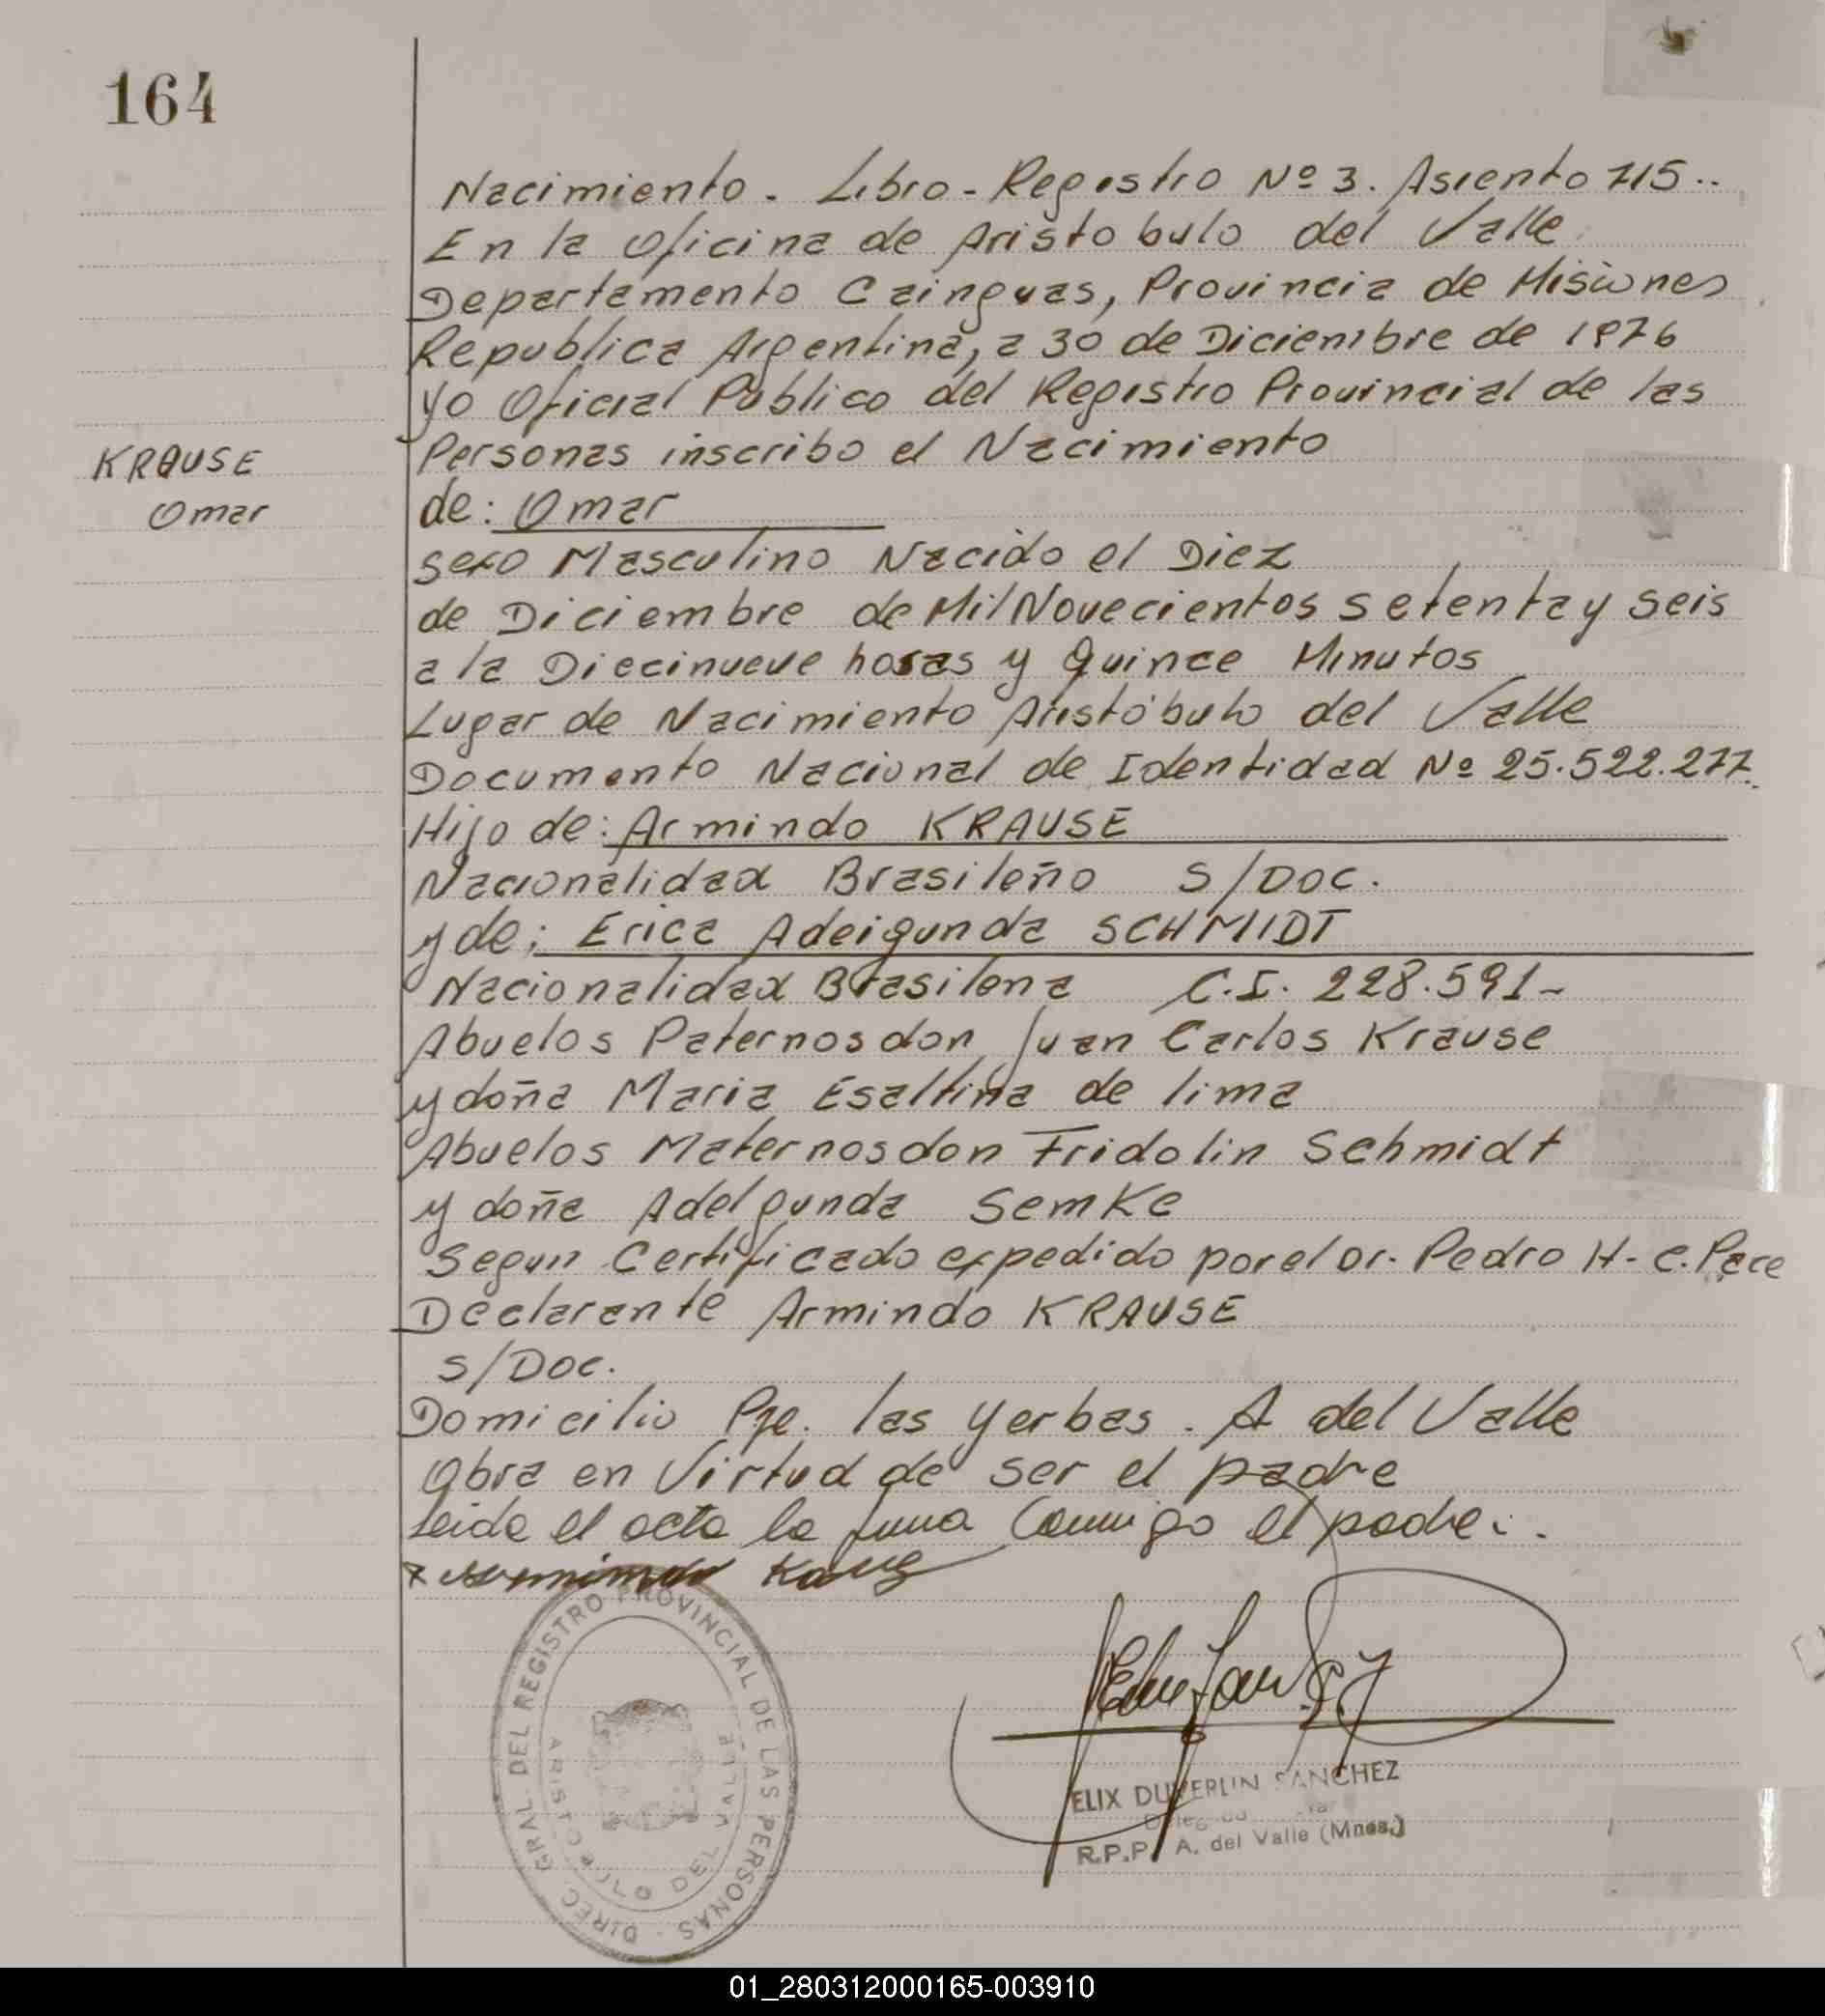 164
Nacimiento - Libro-Registro Nº 3. Asiento 715..
En la Oficina de Aristobulo del Valle
Departamento Cainguas, Provincia de Misiones
Republica Argentina, a 30 de Diciembre de 1976
yo Oficial Público del Registro Provincial de las
Personas inscribo el Nacimiento
KRAUSE
Omar
de: Omar
sexo Masculino Nacido el Diez
de Diciembre de Mil Novecientos setenta y seis
a la Diecinueve horas y Quince Minutos
Lugar de Nacimiento Aristóbulo del Valle
Documento Nacional de Identidad Nº 25.522.277.
Hijo de: Armindo KRAUSE
Nacionalidad Brasileño S/DOC.
y de: Erica Adeigunda SCHMIDT
Nacionalidad Brasilena C.I. 228.591-
Abuelos Paternos don Juan Carlos Krause
y doña Maria Esaltina de lima
Abuelos Maternos don Fridolin Schmidt
y doña Adelgunda Semke
Segun Certificado expedido por el Dr. Pedro H. C. Pace
Declarante Armindo KRAUSE
S/DOC.
Domicilio Pje. las Yerbas. A del Valle
Obra en Virtud de ser el padre
Leida el acta la firma Conmigo el padre.
DIREC. GRAL. DEL REGISTRO PROVINCIAL DE LAS PERSONAS
ARISTOBULO DEL VALLE
ELIX DUVERLIN SANCHEZ
R.P.P. A. del Valle (Mnes.)
01_280312000165-003910